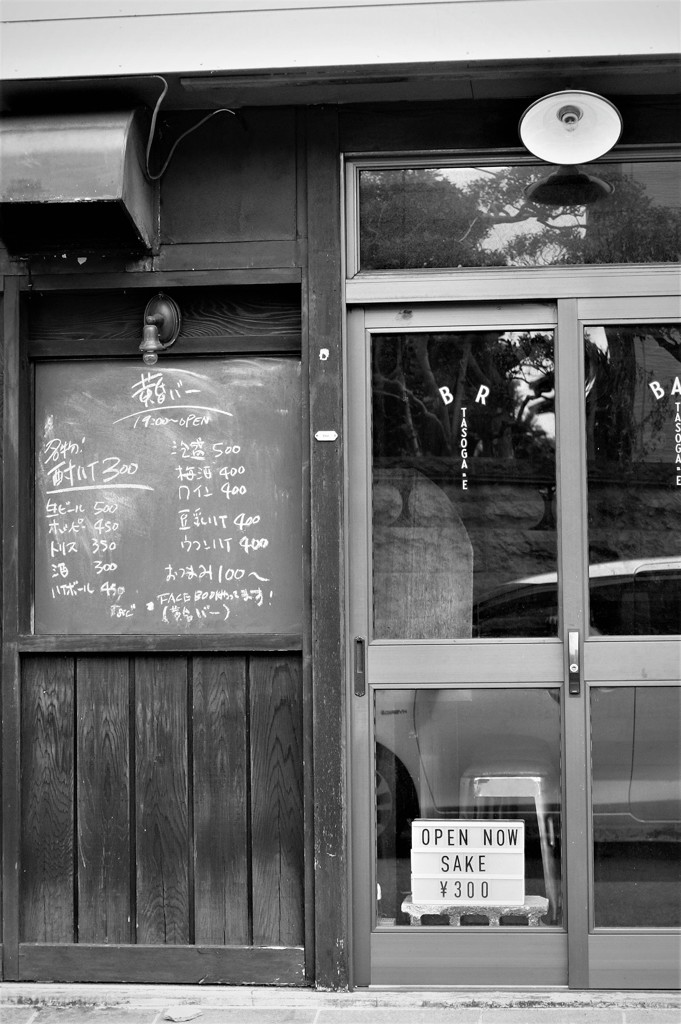 黄昏バー
19:00〜OPEN
名物!
酎ハイ 300
生ビール 500
ホッピー 450
トリス 350
酒 300
ハイボール 450
冷盛 500
梅酒 400
ワイン 400
豆乳ハイ 400
ウコンハイ 400
おつまみ 100〜
FACEBOOKやってます!
(黄昏バー)
B R
TASOGA E
BA
TASOGA E
OPEN NOW
SAKE
¥300